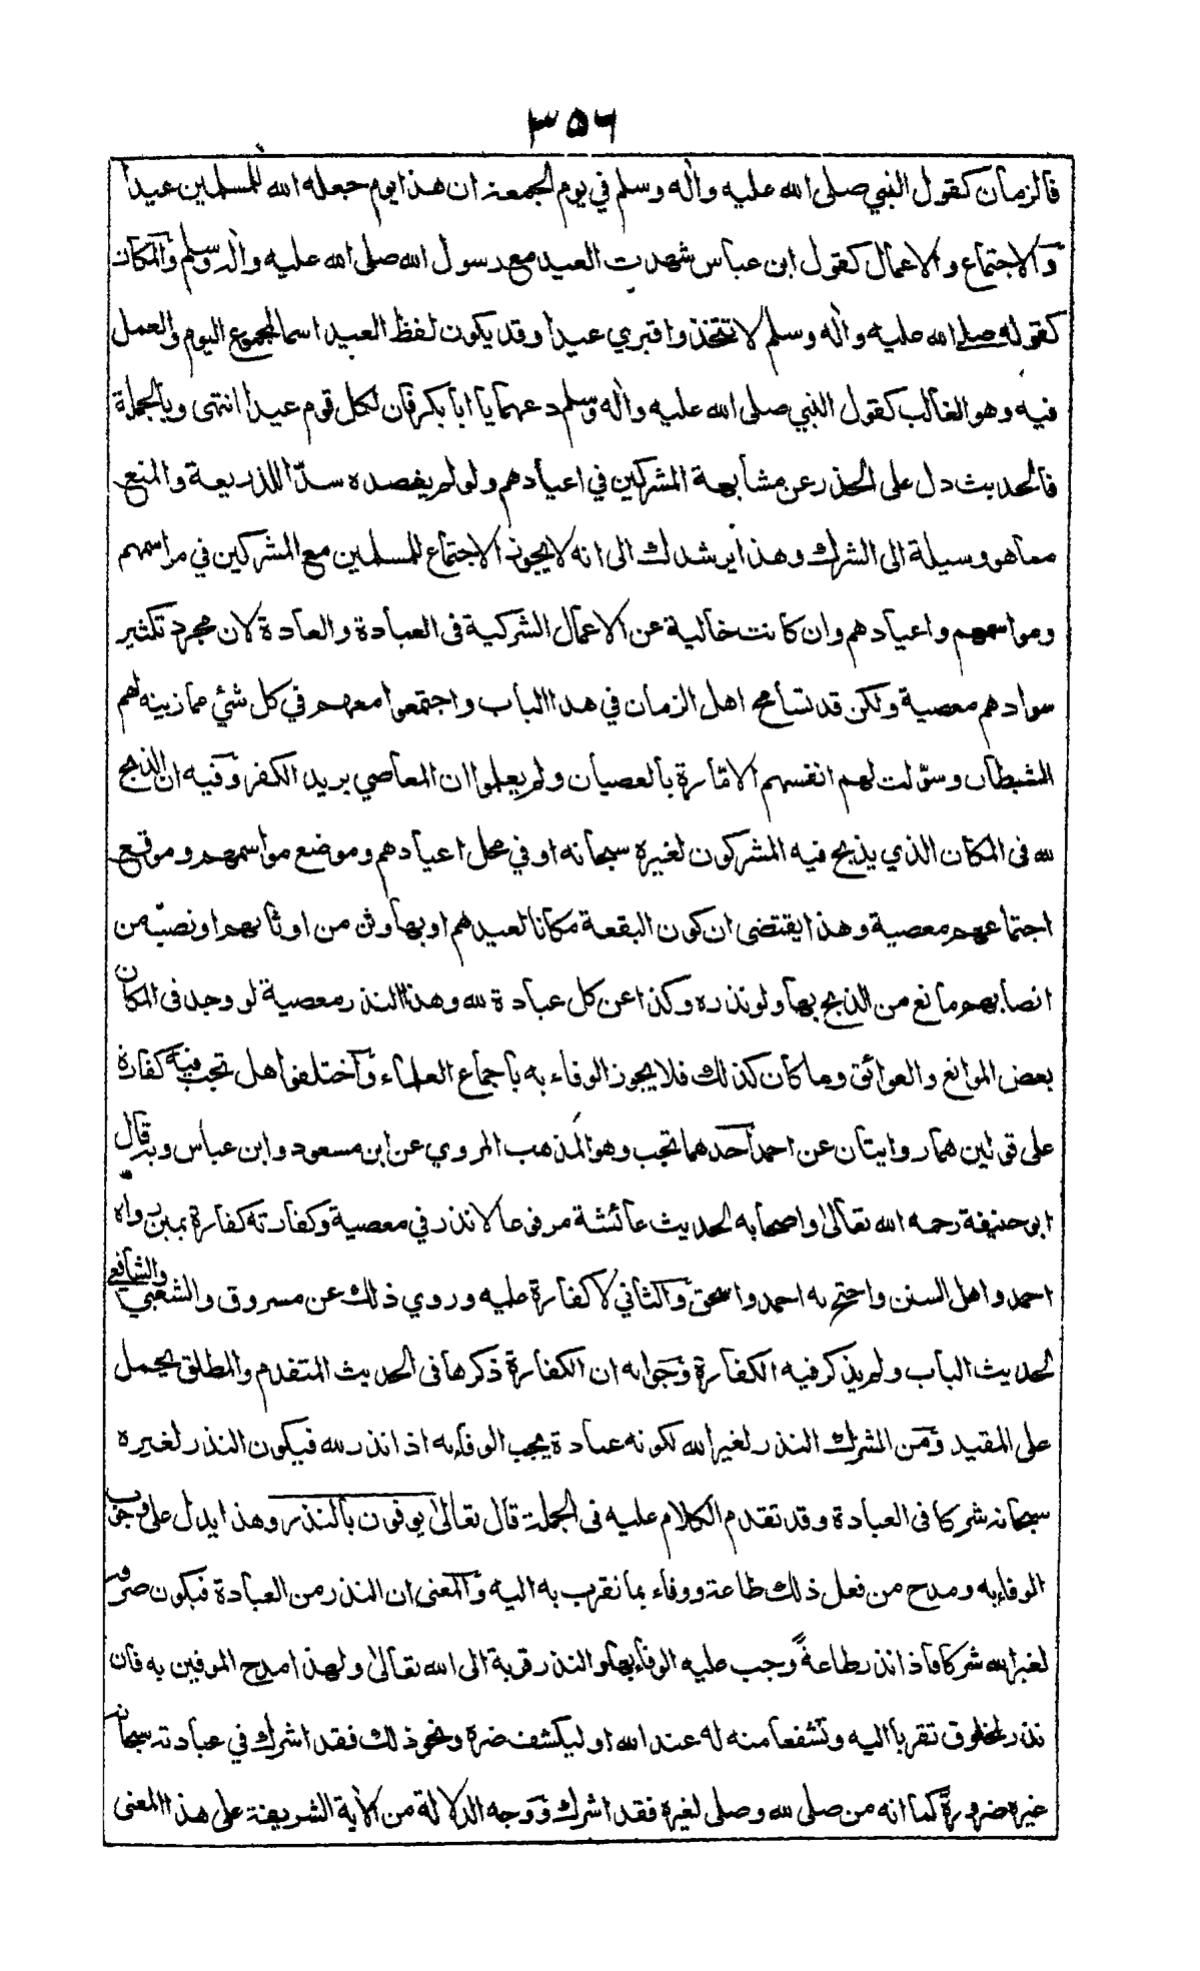 ٣٥٦
فالزمان كقول النبي صلى الله عليه واله وسلم في يوم الجمعة ان هذا يوم جعله الله للمسلمين عيدا
والاجتماع والاعمال كقول ابن عباس شهدت العيد مع رسول الله صلى الله عليه واله وسلم والمكان
كقوله صلى الله عليه واله وسلم لا تتخذوا قبري عيدا وقد يكون لفظ العيد اسما لمجموع اليوم والعمل
فيه وهو الغالب كقول النبي صلى الله عليه واله وسلم دعهما يا ابا بكر فان لكل قوم عيدا انتهى وبالجملة
فالحديث دل على الحذر عن مشابهة المشركين في اعيادهم ولو لم يقصده سدّا للذريعة والمنع
مما هو وسيلة الى الشرك وهذا يرشدك الى انه لا يجوز الاجتماع للمسلمين مع المشركين في مراسمهم
ومواسمهم واعيادهم وان كانت خالية عن الاعمال الشركية فى العبادة والعادة لان مجرد تكثير
سوادهم معصية ولكن قد تسامح اهل الزمان في هذا الباب واجتمعوا معهم في كل شئ مما زينه لهم
الشيطان وسوّلت لهم انفسهم الامّارة بالعصيان ولم يعلموا ان المعاصي بريد الكفر وفيه ان الذبح
لله فى المكان الذي يذبح فيه المشركون لغيره سبحانه او في محل اعيادهم وموضع مواسمهم وموقع
اجتماعهم معصية وهذا يقتضى ان كون البقعة مكانا لعيدهم او بها وثن من اوثانهم او نصبّ من
انصابهم مانع من الذبح بها ولو نذره وكذا عن كل عبادة لله وهذا النذر معصية لو وجد فى المكان
بعض الموانع والعوائق وما كان كذلك فلا يجوز الوفاء به باجماع العلماء واختلفوا هل تجب فيه كفارة
على قولين هما روايتان عن احمد احدهما تجب وهو المذهب المروي عن ابن مسعود وابن عباس وبه قال
ابو حنيفة رحمه الله تعالى واصحابه لحديث عائشة مرفوعا لا نذر في معصية وكفارته كفارة يمين رواه
احمد واهل السنن واحتج به احمد واسحق والثاني لا كفارة عليه وروي ذلك عن مسروق والشعبي والشافعي
لحديث الباب ولم يذكر فيه الكفارة وجوابه ان الكفارة ذكرها فى الحديث المتقدم والمطلق يحمل
على المقيد ومن الشرك النذر لغير الله لكونه عبادة يجب الوفاء به اذا نذر لله فيكون النذر لغيره
سبحانه شركا فى العبادة وقد تقدم الكلام عليه فى الجملة قال تعالى يوفون بالنذر وهذا يدل على وجوب
الوفاء به ومدح من فعل ذلك طاعة ووفاء بما تقرب به اليه والمعنى ان النذر من العبادة فيكون صرفه
لغير الله شركا فاذا نذر طاعةً وجب عليه الوفاء بها والنذر قربة الى الله تعالى ولهذا مدح الموفين به فان
نذر لمخلوق تقربا اليه وتشفعا منه له عند الله او ليكشف ضره ونحو ذلك فقد اشرك في عبادته سبحانه
غيره ضرورةً كما انه من صلى لله وصلى لغيره فقد اشرك ووجه الدلالة من الأية الشريفة على هذا المعنى